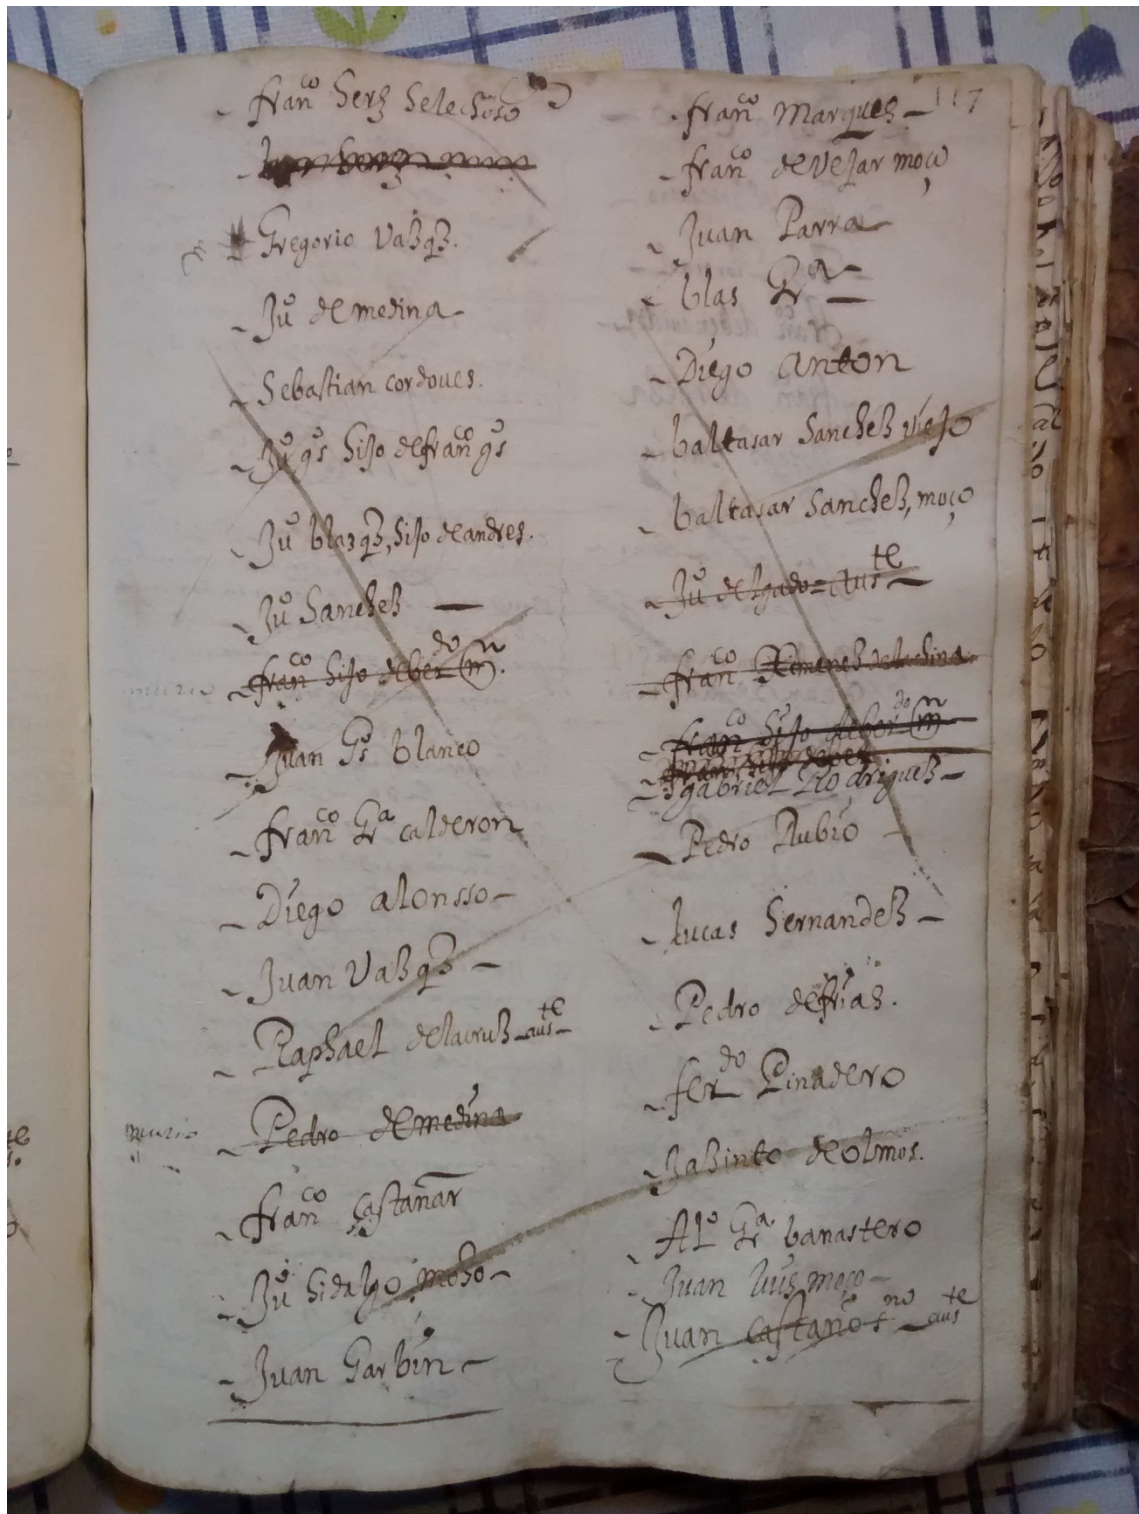 franco herz helechoso
Gregorio Vazqz.
Juo de medina
Sebastian cordoues.
Juo gs hijo de franco gs
Juo blazqz, hijo de andres.
Juo Sanchez
murio franco hijo de berdo mn.
Juan Gs blanco
franco Gra calderon
Diego alonsso
Juan Vazqz
Raphael de la cruz auste
murio Pedro de medina
franco castañar
Juo hidalgo moço
Juan Garbin
117
franco Marques
franco de Vejar moço
Juan Parra
blas Gra
Diego anton
baltasar Sanchez viejo
baltasar Sanchez, moço
Juo delgado auste
franco Ximenez de la china
franco hijo de berdo mn
gabriel Rodriguez
Pedro Rubio
lucas hernandez
Pedro de frias.
ferdo Pinadero
Jazinto de olmos.
Alo Gra banastero
Juan luis moço
Juan castaño auste